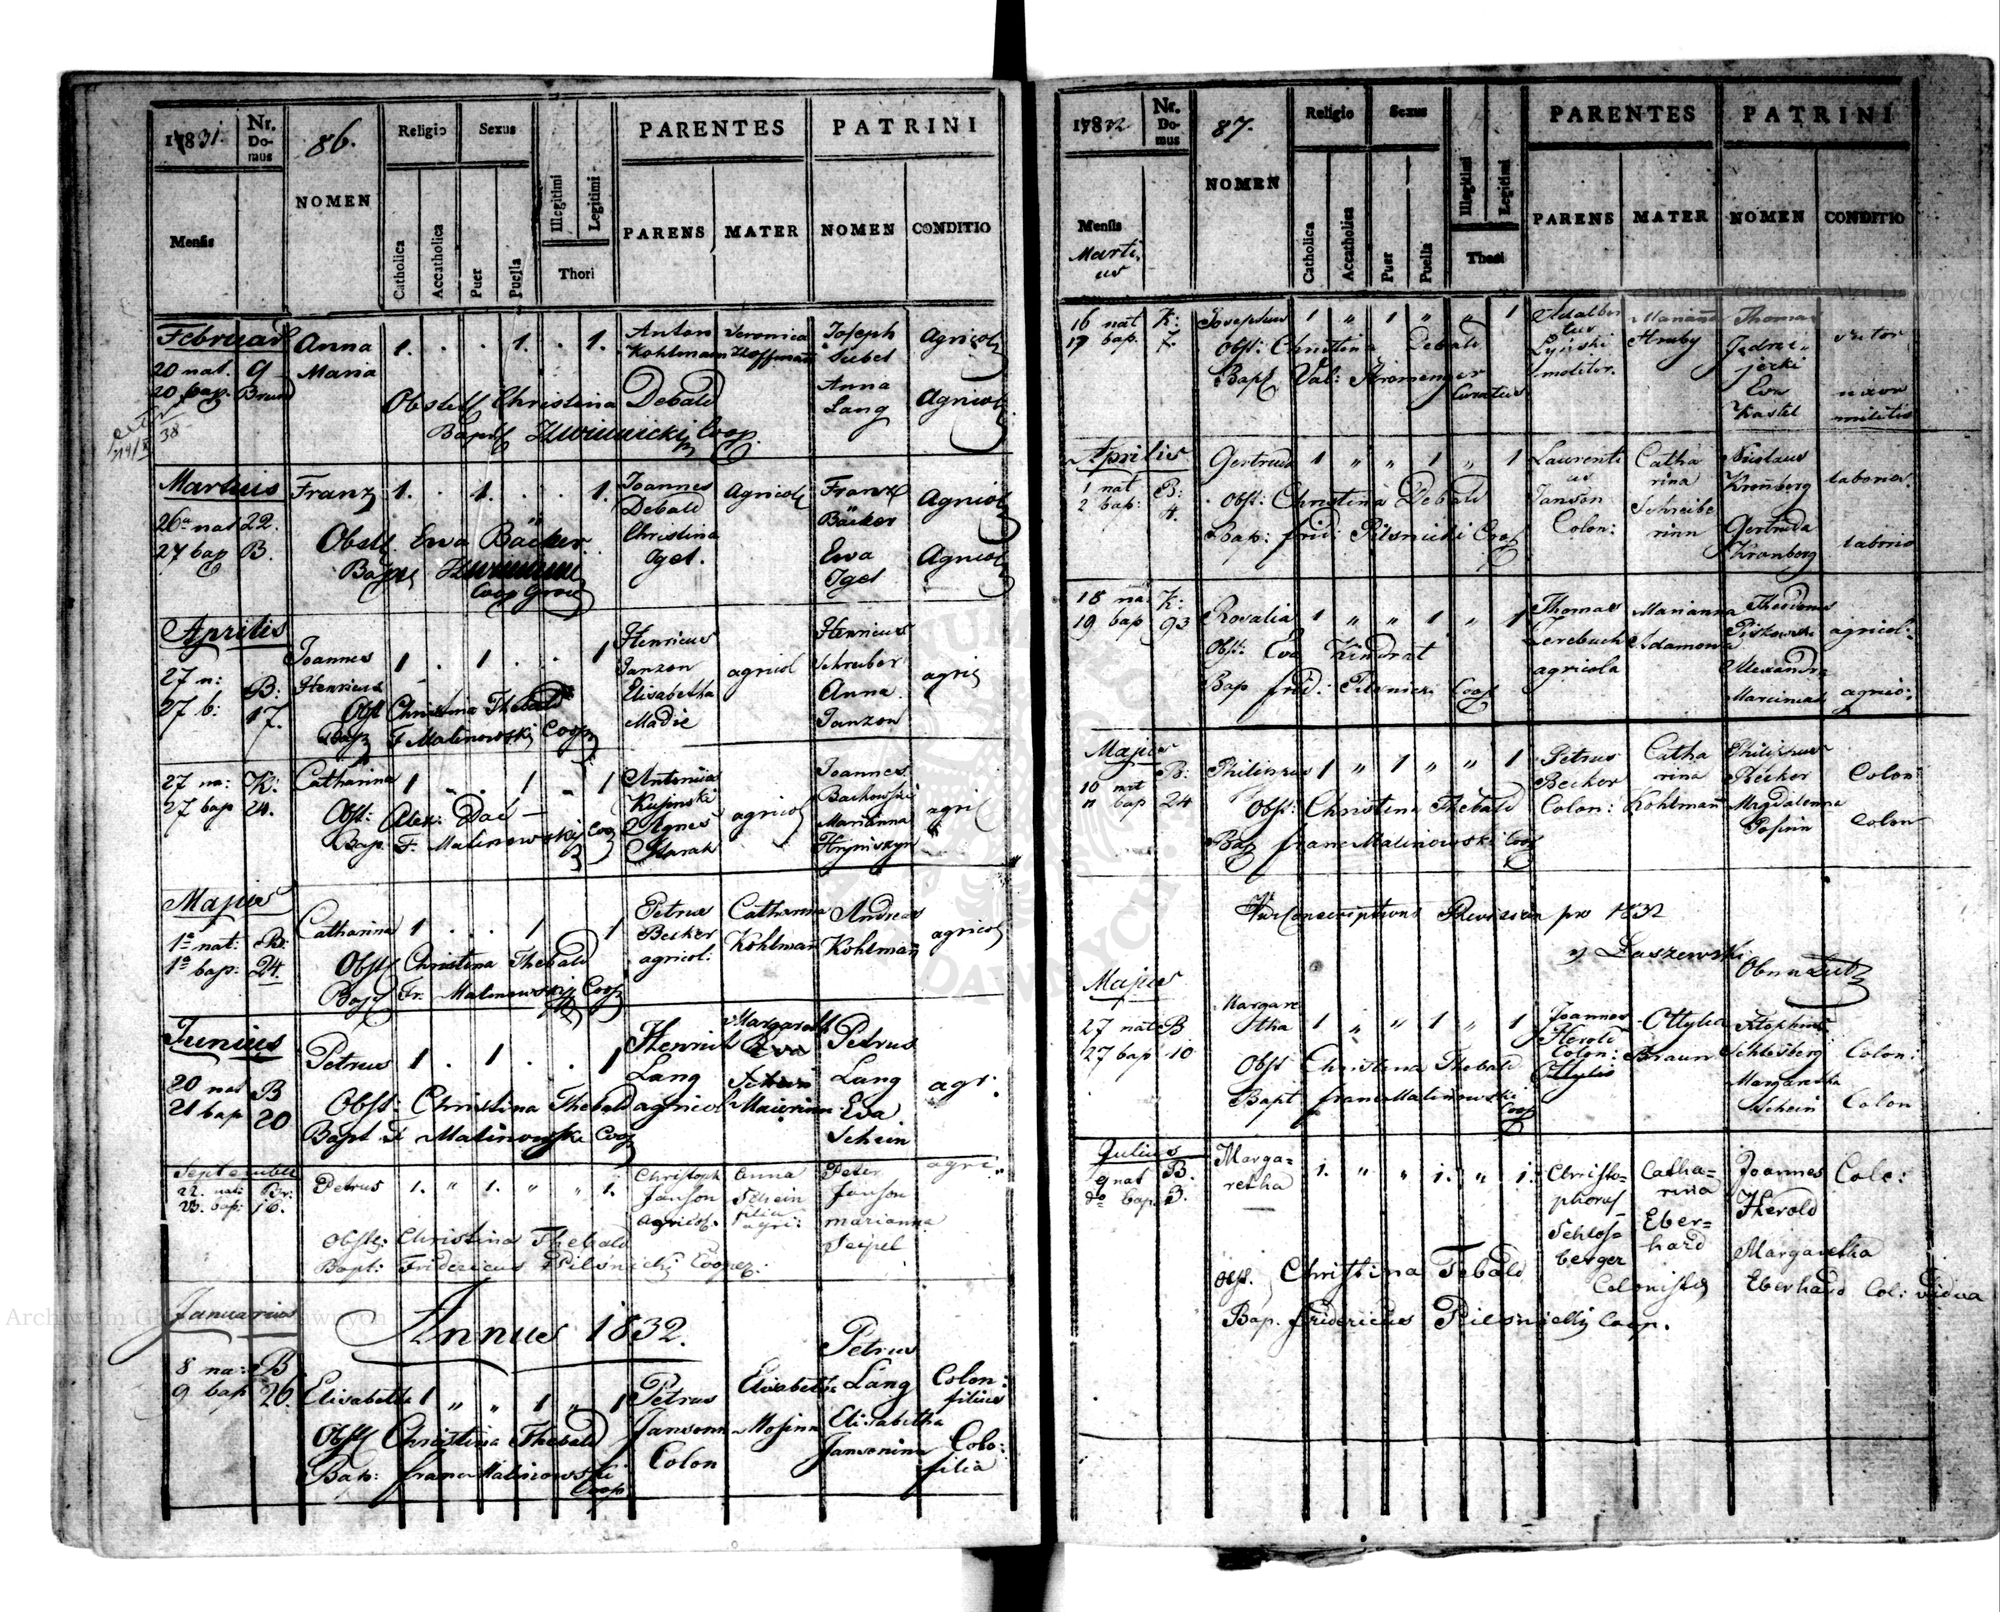 1831.
Nr. Domus
86.
NOMEN
Religio
Sexus
Illegitimi
Legitimi
PARENTES
PATRINI
Mensis
Catholica
Accatholica
Puer
Puella
Thori
PARENS
MATER
NOMEN
CONDITIO
Februar
20 nat. 9
20 bap.
Anna Maria
1. . . 1. . 1.
Anton Kohlmann
Veronica Hoffmann
Joseph Seibel
Agricol
Anna Lang
Agricol
Obstet Christina Debald
Bapt Coop.
38
Martius
26a nat 22.
27 bap B.
Franz
1. . 1. . . 1.
Joannes Debald
Christina Igel.
Agricol
Franz Bäcker
Agricol
Eva Igel
Agricol
Obst. Eva Bäcker
Aprilis
27 n:
27 b:
B: 17.
Joannes Henricus
1 . 1 . . 1
Henricus Janzon
Elisabetha Madie
agricol
Henricus Schreiber
Anna Janzon
agric
Obst Christina Thebald
Bap F Malinowski Coop
27 na: K:
27 bap 24.
Catharina
1 . . 1 . 1
Antonius Kusinski
Agnes
agricol
Joannes Backowski
Marianna Hryniszyn
agric
Obst: Alex: Dac
Bap. F. Malinowski Coop
Majus
1a nat: B:
1a bap: 24.
Catharina
1 . . 1 . 1
Petrus Becker
agricol:
Catharina Kohlmañ
Andreas Kohlmañ
agricol
Obst Christina Thebald
Bap Fr. Malinowski Coop
Junius
20 nat B
21 bap 20
Petrus
1 . 1 . . 1
Henrich Lang
agricol
Margaretha
Petrus Lang
Eva Schein
agr:
Obst. Christina Thebald
Bapt F Malinowski Coop
September
22. nat: Br:
23. bap: 16.
Petrus
1. " 1. " " 1.
Christoph Janson
agricol.
Anna Schein
filia agri:
Peter Janson
marianna Seipel
agri:
Obstz: Christina Thebald
Bapt: Fridericus Pilsnicki Cooper:
Januarius
Annus 1832.
8 na: B
9 bap 26.
Elisabetha
1 " " 1 " 1
Petrus Jansonn
Colon
Elisabetha Mosinn
Petrus Lang
Colon: filius
Elisabetha Jansonina
Colo: filia
Obst Christina Thebald
Bap: franc Malinowski Coop
1832
Nr. Domus
87.
NOMEN
Religio
Sexus
Illegitimi
Legitimi
PARENTES
PATRINI
Mensis
Martius
Catholica
Accatholica
Puer
Puella
Thori
PARENS
MATER
NOMEN
CONDITIO
16 nat K:
17 bap.
Josephus
1 " 1 " " 1
Adalbertus Lysiski
molitor.
Mariañna Hruby
Thomas
sutor
Eva Kastel
uxor militis
Obst: Christina Debald
Bapt Val: Curatus
Aprilis
1 nat B:
2 bap: 4.
Gertrud
1 " " 1 " 1
Laurentius Janson
Colon:
Catharina Schreiberinn
Nicolaus Kronberg
laborio.
Gertruda Kronberg
laborio
Obst: Christina Debald
Bap: frid: Pilsnicki Coop
18 na: K:
19 bap 93
Rosalia
1 " " 1 " 1
Thomas Zerebuch
agricola
Marianna Adamowa
Theodorus
agricol:
Alexandra
agric:
Obst: Eva Kindrat
Bap frid: Pilsnicki Coop
Majus
10 nat B:
11 bap 24
Philippus
1 " 1 " " 1
Petrus Becker
Colon:
Catharina Kohlmañ
Philippus Becker
Colon:
Magdalenna
Colon
Obst: Christina Thebald
Bap franc Malinowski Coop
Conscriptions Revision pro 1832
Laszewski
Majus
27 nat B
27 bap 10
Margaretha
1 " " 1 " 1
Joannes Herold
Colon:
Ottylia
Ottylia Braun
Stephan Schlosberg
Colon:
Margaretha Schein
Colon
Obst Christina Thebald
Bapt franc Malinowski Coop
Julius
9 nat B.
do bap. 3.
Margaretha
1. " " 1. " 1.
Christophorus Schlossberger
Catharina Eberhard
Colonistz
Joannes Herold
Colo:
Margaretha Eberhard Col: vidua
Obst. Christina Tebald
Bap. fridericus Pilsnicki Coop.